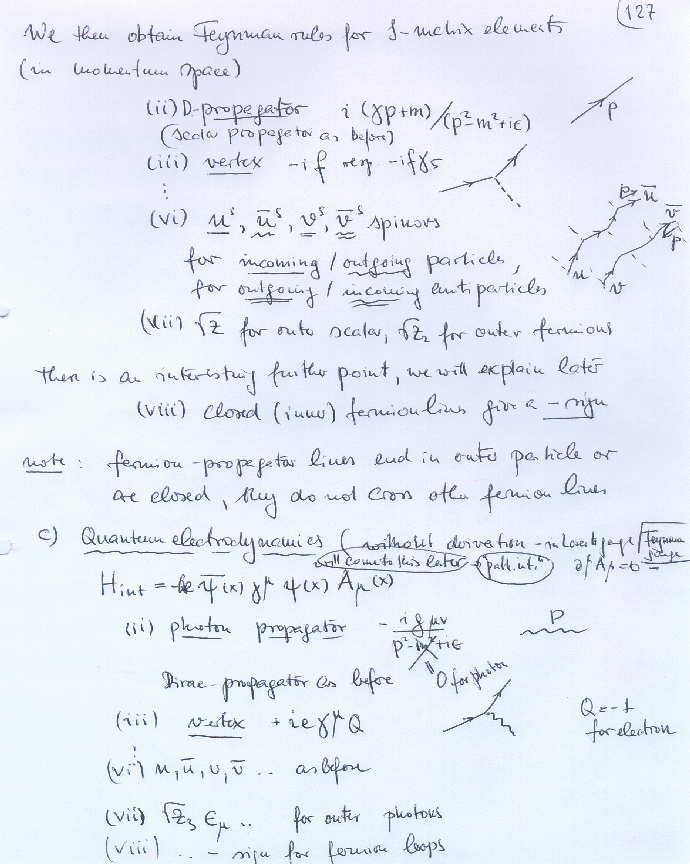 127
We then obtain Feynman rules for S-matrix elements
(in momentum space)
(ii) D-propagator i (γp+m)/(p²-m²+iε) p
(scalar propagator as before)
(iii) vertex -if resp. -ifγ₅
⋮
(vi) uˢ, ūˢ, vˢ, v̄ˢ spinors p ū v̄ p
for incoming / outgoing particles,
for outgoing / incoming antiparticles u v
(vii) √Z for outer scalar, √Z₂ for outer fermions
there is an interesting further point, we will explain later
(viii) closed (inner) fermion lines give a - sign
note : fermion-propagator lines end in outer particle or
are closed, they do not cross other fermion lines
c) Quantum electrodynamics (without derivation - in Lorentz gauge / Feynman gauge
will come to this later "path int." ∂^μ A_μ = 0
H_int = e ψ̄(x) γ^μ ψ(x) A_μ(x)
(ii) photon propagator - i g μν / p²-m²+iε p
Dirac-propagator as before 0 for photon
(iii) vertex + ieγ^μ Q Q = -1
for electron
⋮
(vi) u, ū, v, v̄ .. as before
(vii) √Z₃ ε_μ .. for outer photons
(viii) .. - sign for fermion loops